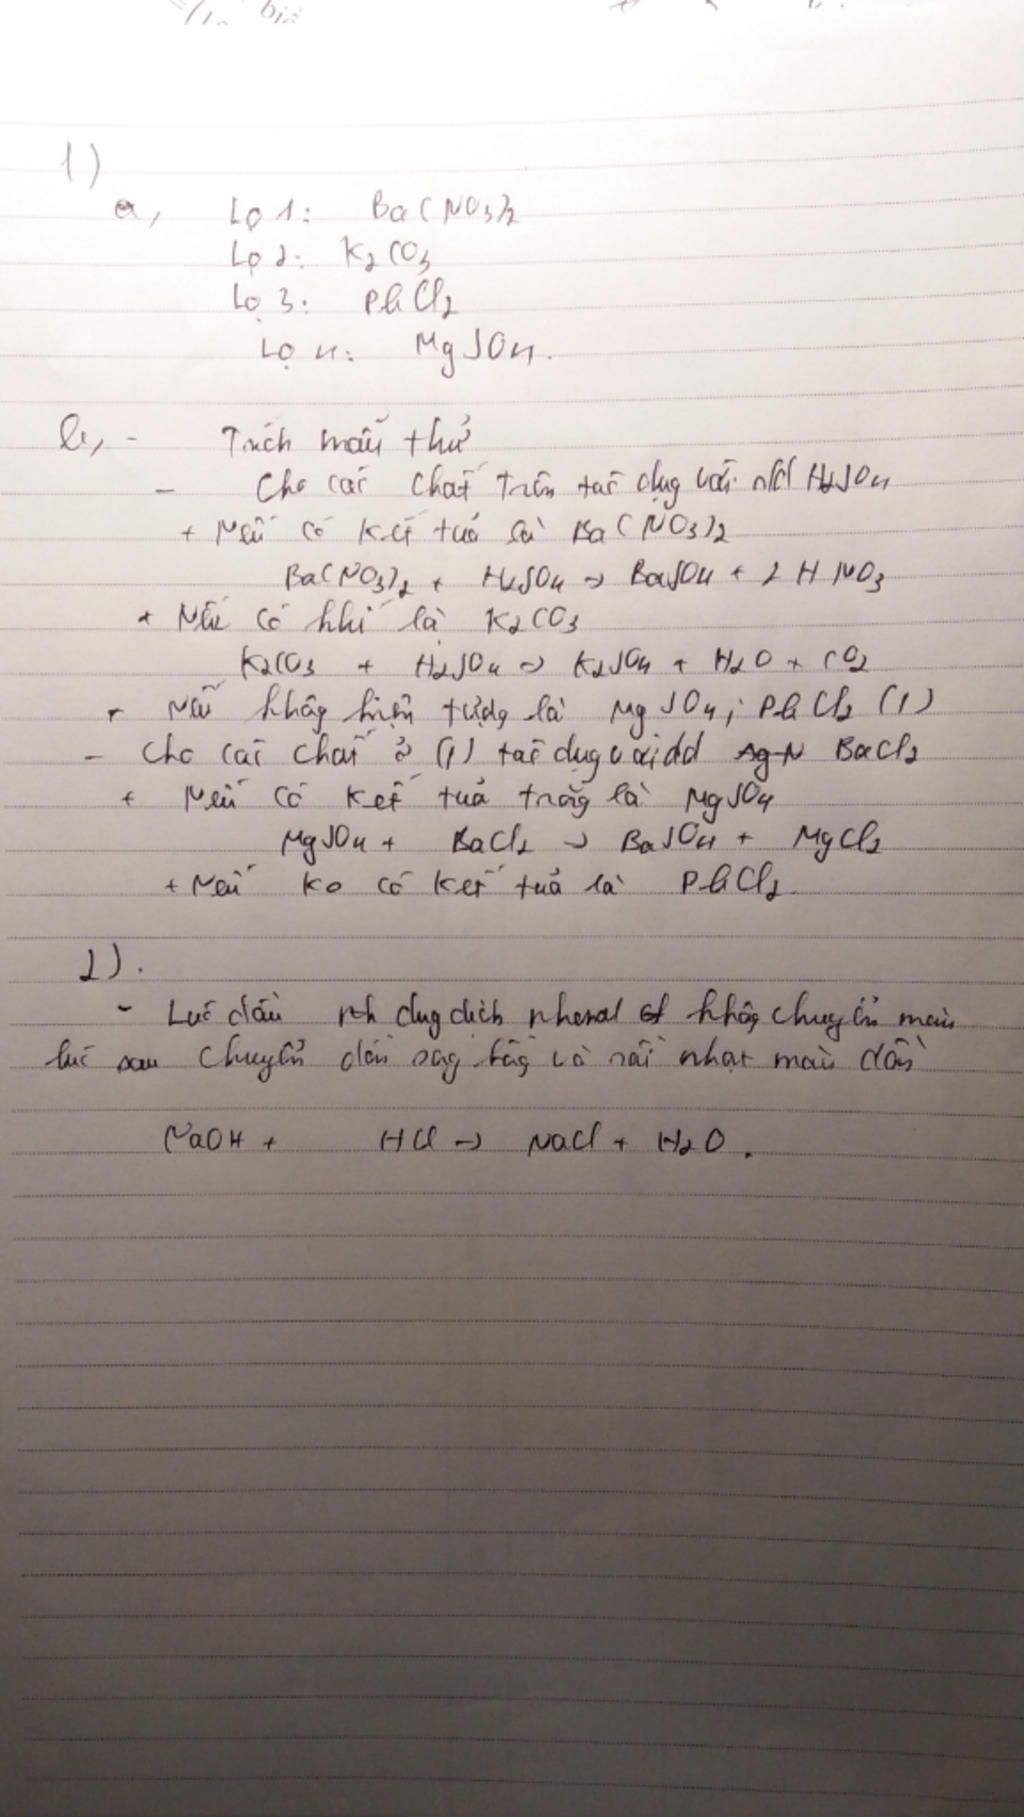 1)
a, Lọ 1: Ba(NO3)2
Lọ 2: K2CO3
Lọ 3: PbCl2
Lọ 4: MgSO4.
b, - Trích mẫu thử
- Cho các chất trên tác dụng với H2SO4
+ Nếu có kết tủa là Ba(NO3)2
Ba(NO3)2 + H2SO4 → BaSO4 + 2HNO3
+ Nếu có khí là K2CO3
K2CO3 + H2SO4 → K2SO4 + H2O + CO2
+ Nếu không hiện tượng là MgSO4; PbCl2 (1)
- Cho các chất ở (1) tác dụng với dd BaCl2
+ Nếu có kết tủa trắng là MgSO4
MgSO4 + BaCl2 → BaSO4 + MgCl2
+ Nếu ko có kết tủa là PbCl2
2).
- Lúc đầu dung dịch không chuyển màu
lúc sau chuyển dần sang hồng và rồi nhạt màu dần
NaOH + HCl → NaCl + H2O.